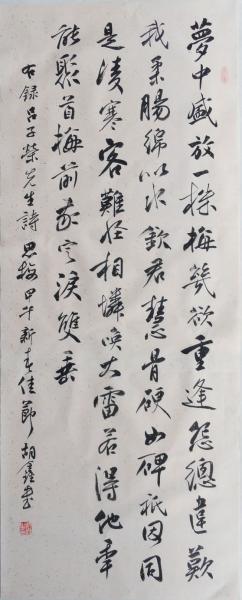 夢中盛放一株梅幾欲重逢怨總違歎
我柔腸綿似水欽君慧骨硬如碑祇因同
是凌寒客難怪相憐喚大雷若得他年
能聚首梅前敢令淚雙垂
右錄呂子榮先生詩思梅甲午新春佳節胡鑫书